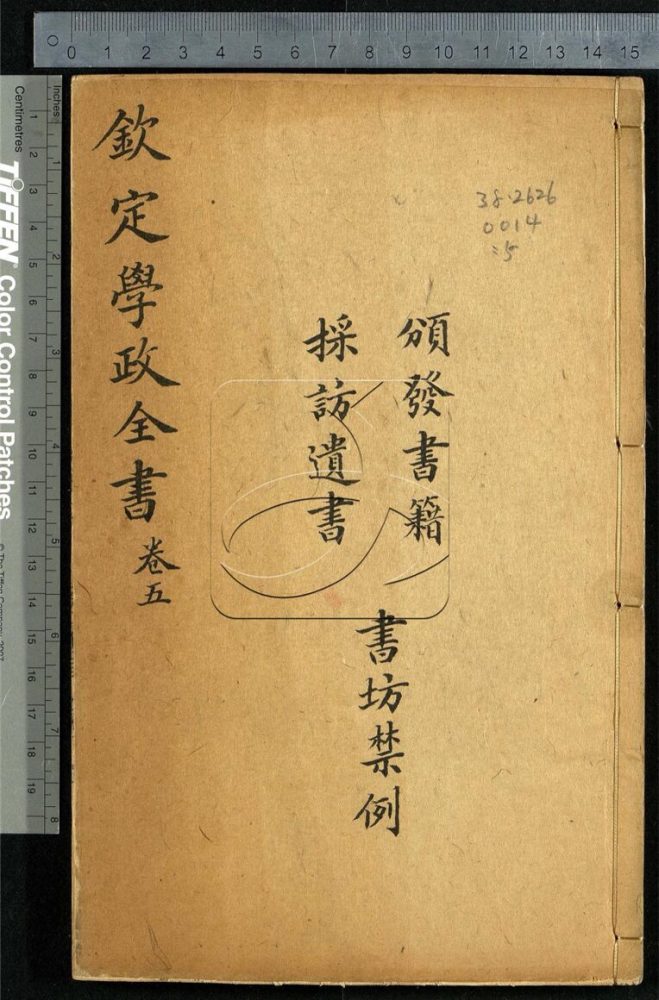 0 1 2 3 4 5 6 7 8 9 10 11 12 13 14 15
38.2626
0014
:5
頒發書籍
採訪遺書
書坊禁例
欽定學政全書 卷五
Inches
1 2 3 4 5 6 7 8
Centimetres
1 2 3 4 5 6 7 8 9 10 11 12 13 14 15 16 17 18 19
TIFFEN Color Control Patches
© The Tiffen Company, 2007